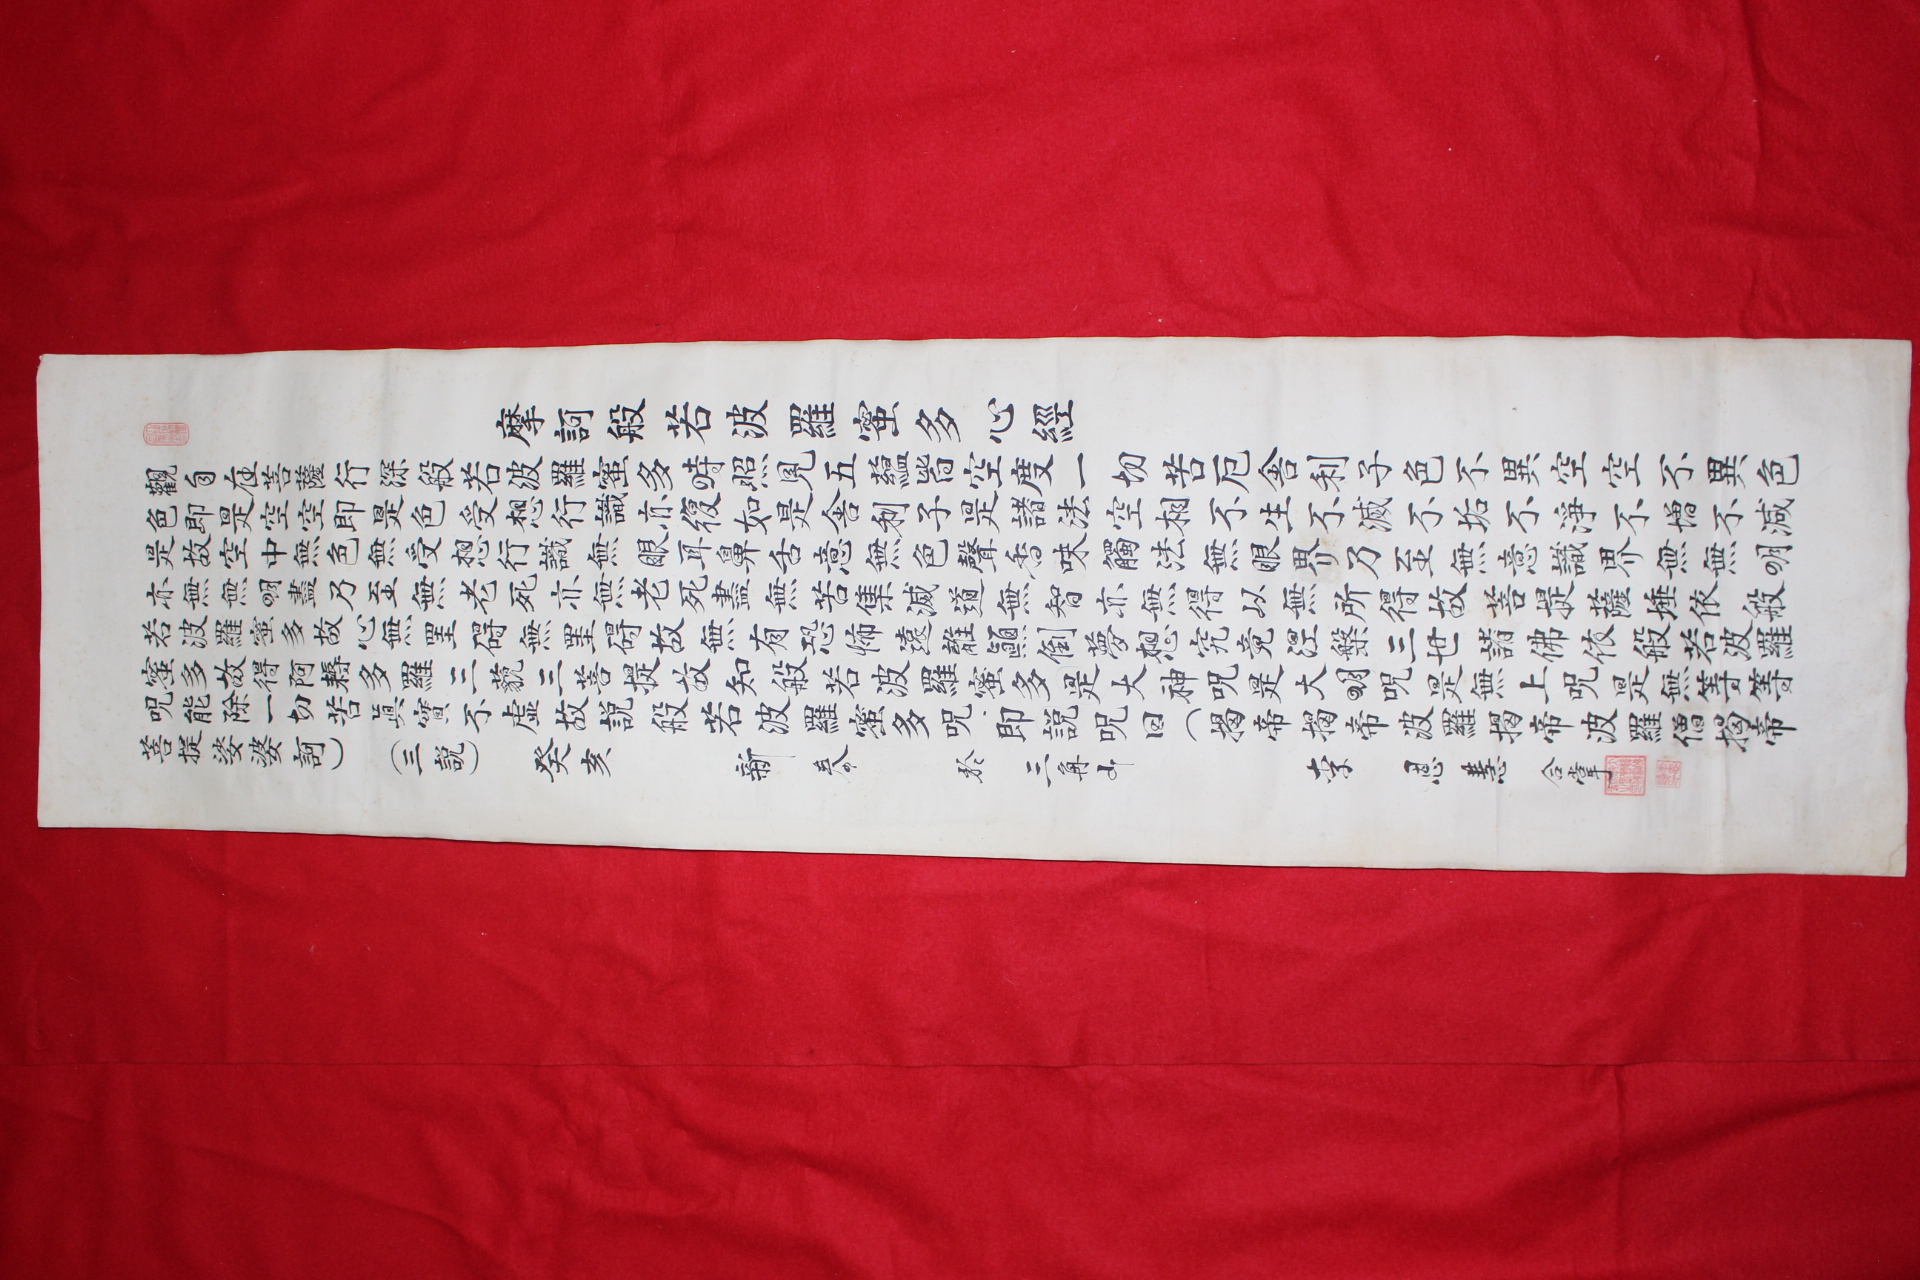 摩訶般若波羅蜜多心經
觀自在菩薩行深般若波羅蜜多時照見五蘊皆空度一切苦厄舍利子色不異空空不異色
色即是空空即是色受想行識亦復如是舍利子是諸法空相不生不滅不垢不淨不增不減
是故空中無色無受想行識無眼耳鼻舌意無色聲香味觸法無眼界乃至無意識界無無明
亦無無明盡乃至無老死亦無老死盡無苦集滅道無智亦無得以無所得故菩提薩埵依般
若波羅蜜多故心無罣礙無罣礙故無有恐怖遠離顚倒夢想究竟涅槃三世諸佛依般若波羅
蜜多故得阿耨多羅三藐三菩提故知般若波羅蜜多是大神呪是大明呪是無上呪是無等等
呪能除一切苦眞實不虛故說般若波羅蜜多呪即說呪曰(揭帝揭帝波羅揭帝波羅僧揭帝
菩提娑婆訶)(三說) 癸亥 新 於三角山 李恩慧 合掌